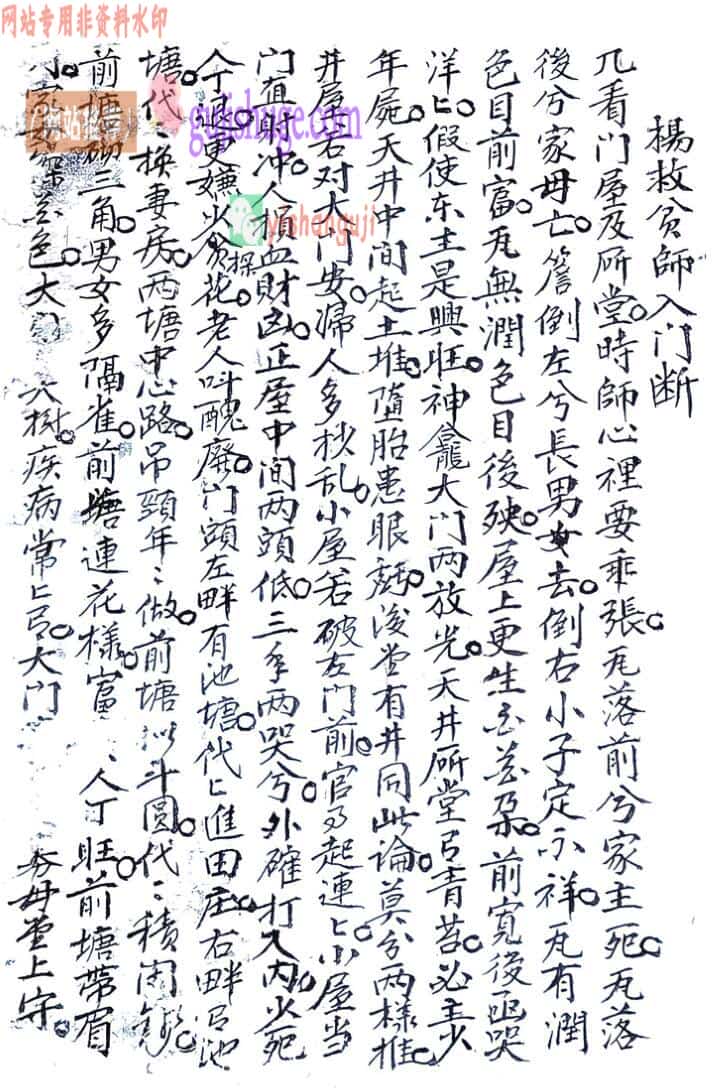 网站专用非资料水印
楊救贫師入门断
凡看门屋及㕔堂時師心裡要乖張瓦落前兮家主死瓦落
後兮家母亡簷倒左兮長男女去倒右小子定不祥瓦有润
色目前富瓦無潤色目後殃屋上更生芝朶前寬後逼哭
洋ヒ假使东主是興旺神龕大门两放光天井㕔堂弓青苔必主少
年屍天井中间起土堆堕胎患眼後堂有井同此論莫分两樣推
井屋若对大门安婦人多抄乱小屋若破左门前官司起連ヒ小屋当
门直射冲人損血財凶正屋中间两頭低三年两哭兮外確打入内火死
人丁退更嫌火探花老人呌醜廢门頭左畔有池塘代ヒ進田庄右畔弓池
塘代ミ换妻房两塘中心路吊頸年ミ做前塘似斗圆代ミ積闲錢
前塘三角男女多隔雀前塘連花樣富人丁旺前塘带眉
色大疾病常ヒ弓大门母堂上守
gujishuge.com
yishanguji